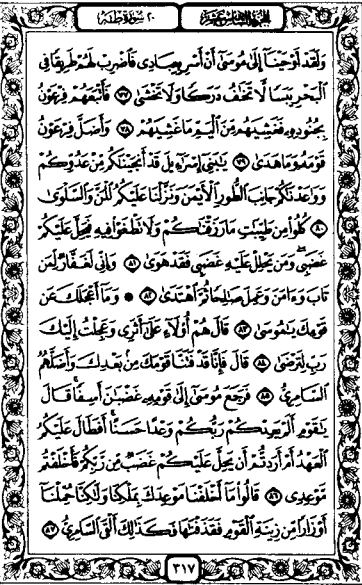 الجزء السادس عشر ٢٠ سورة طه
وَلَقَدْ أَوْحَيْنَا إِلَىٰ مُوسَىٰ أَنْ أَسْرِ بِعِبَادِي فَاضْرِبْ لَهُمْ طَرِيقًا فِي
الْبَحْرِ يَبَسًا لَّا تَخَافُ دَرَكًا وَلَا تَخْشَىٰ ٧٧ فَأَتْبَعَهُمْ فِرْعَوْنُ
بِجُنُودِهِ فَغَشِيَهُم مِّنَ الْيَمِّ مَا غَشِيَهُمْ ٧٨ وَأَضَلَّ فِرْعَوْنُ
قَوْمَهُ وَمَا هَدَىٰ ٧٩ يَا بَنِي إِسْرَائِيلَ قَدْ أَنجَيْنَاكُم مِّنْ عَدُوِّكُمْ
وَوَاعَدْنَاكُمْ جَانِبَ الطُّورِ الْأَيْمَنَ وَنَزَّلْنَا عَلَيْكُمُ الْمَنَّ وَالسَّلْوَىٰ
٨٠ كُلُوا مِن طَيِّبَاتِ مَا رَزَقْنَاكُمْ وَلَا تَطْغَوْا فِيهِ فَيَحِلَّ عَلَيْكُمْ
غَضَبِي وَمَن يَحْلِلْ عَلَيْهِ غَضَبِي فَقَدْ هَوَىٰ ٨١ وَإِنِّي لَغَفَّارٌ لِّمَن
تَابَ وَآمَنَ وَعَمِلَ صَالِحًا ثُمَّ اهْتَدَىٰ ٨٢ وَمَا أَعْجَلَكَ عَن
قَوْمِكَ يَا مُوسَىٰ ٨٣ قَالَ هُمْ أُولَاءِ عَلَىٰ أَثَرِي وَعَجِلْتُ إِلَيْكَ
رَبِّ لِتَرْضَىٰ ٨٤ قَالَ فَإِنَّا قَدْ فَتَنَّا قَوْمَكَ مِن بَعْدِكَ وَأَضَلَّهُمُ
السَّامِرِيُّ ٨٥ فَرَجَعَ مُوسَىٰ إِلَىٰ قَوْمِهِ غَضْبَانَ أَسِفًا قَالَ
يَا قَوْمِ أَلَمْ يَعِدْكُمْ رَبُّكُمْ وَعْدًا حَسَنًا أَفَطَالَ عَلَيْكُمُ
الْعَهْدُ أَمْ أَرَدتُّمْ أَن يَحِلَّ عَلَيْكُمْ غَضَبٌ مِّن رَّبِّكُمْ فَأَخْلَفْتُم
مَّوْعِدِي ٨٦ قَالُوا مَا أَخْلَفْنَا مَوْعِدَكَ بِمَلْكِنَا وَلَٰكِنَّا حُمِّلْنَا
أَوْزَارًا مِّن زِينَةِ الْقَوْمِ فَقَذَفْنَاهَا فَكَذَٰلِكَ أَلْقَى السَّامِرِيُّ ٨٧
٣١٧